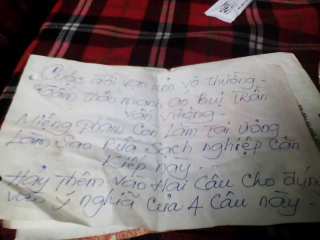 Cuộc đời vạn nẻo vô thường -
Tấm thân manh áo, bụi trần
vấn vương -
Miệng phàm còn lắm tai ương
Làm sao rửa sạch nghiệp căn
Kiếp này -
Hãy thêm vào Hai Câu cho đúng
vào ý nghĩa của 4 Câu này -